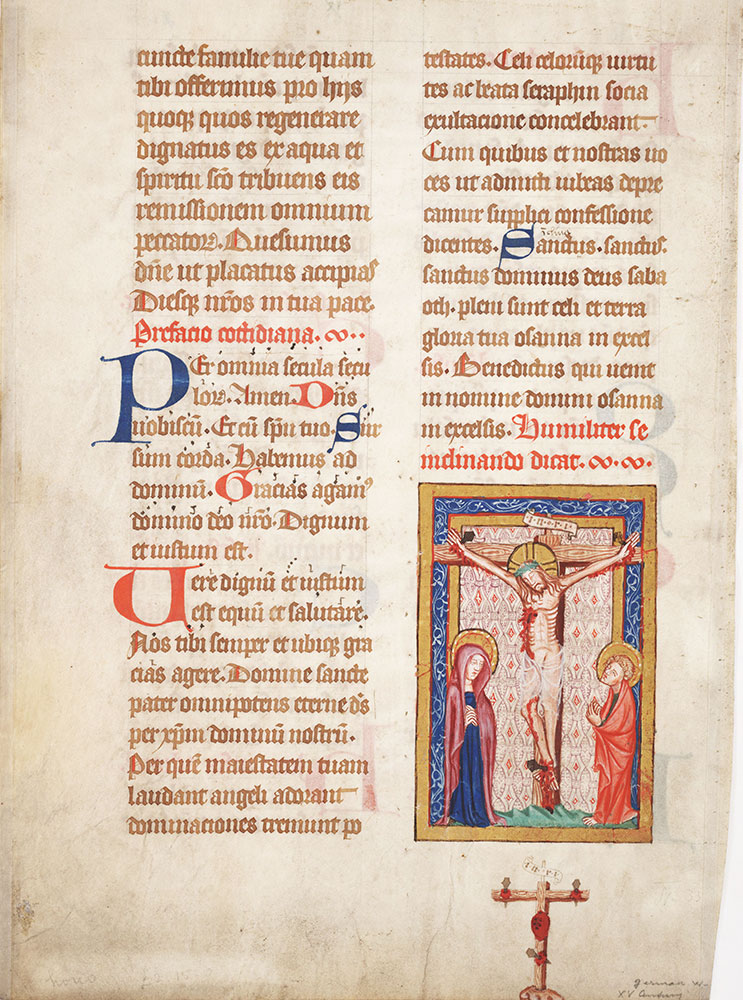 cuncte familie tue quam
tibi offerimus pro hijs
quoq; quos regenerare
dignatus es ex aqua et
spiritu sc̄o tribuens eis
remissionem omnium
peccatoꝝ. Quesumus
dn̄e ut placatus accipias
Diesq; nr̄os in tua pace.
Prefacio cottidiana.
PEr omnia secula secu
loꝝ. Amen. Dn̄s
uobiscū. Et cū sp̄u tuo. Sur
sum corda. Habemus ad
dominū. Gracias agamꝰ
domino deo nr̄o. Dignum
et iustum est.
Uere dignū et iustum
est equū et salutare.
Nos tibi semper et ubiq; gra
cias agere. Domine sancte
pater omnipotens eterne ds̄
per xp̄m dominū nostrū.
Per quē maiestatem tuam
laudant angeli adorant
dominaciones tremunt po
testates. Celi celorūq; uirtu
tes ac beata seraphin socia
exultacione concelebrant.
Cum quibus et nostras uo
ces ut admitti iubeas depre
camur supplici confessione
dicentes. Sanctus. sanctus.
sanctus dominus deus saba
oth. pleni sunt celi et terra
gloria tua osanna in excel
sis. Benedictus qui uenit
in nomine domini osanna
in excelsis. Humiliter se
inclinando dicat.
I·N·R·I·
I·N·R·I
German
XV Century